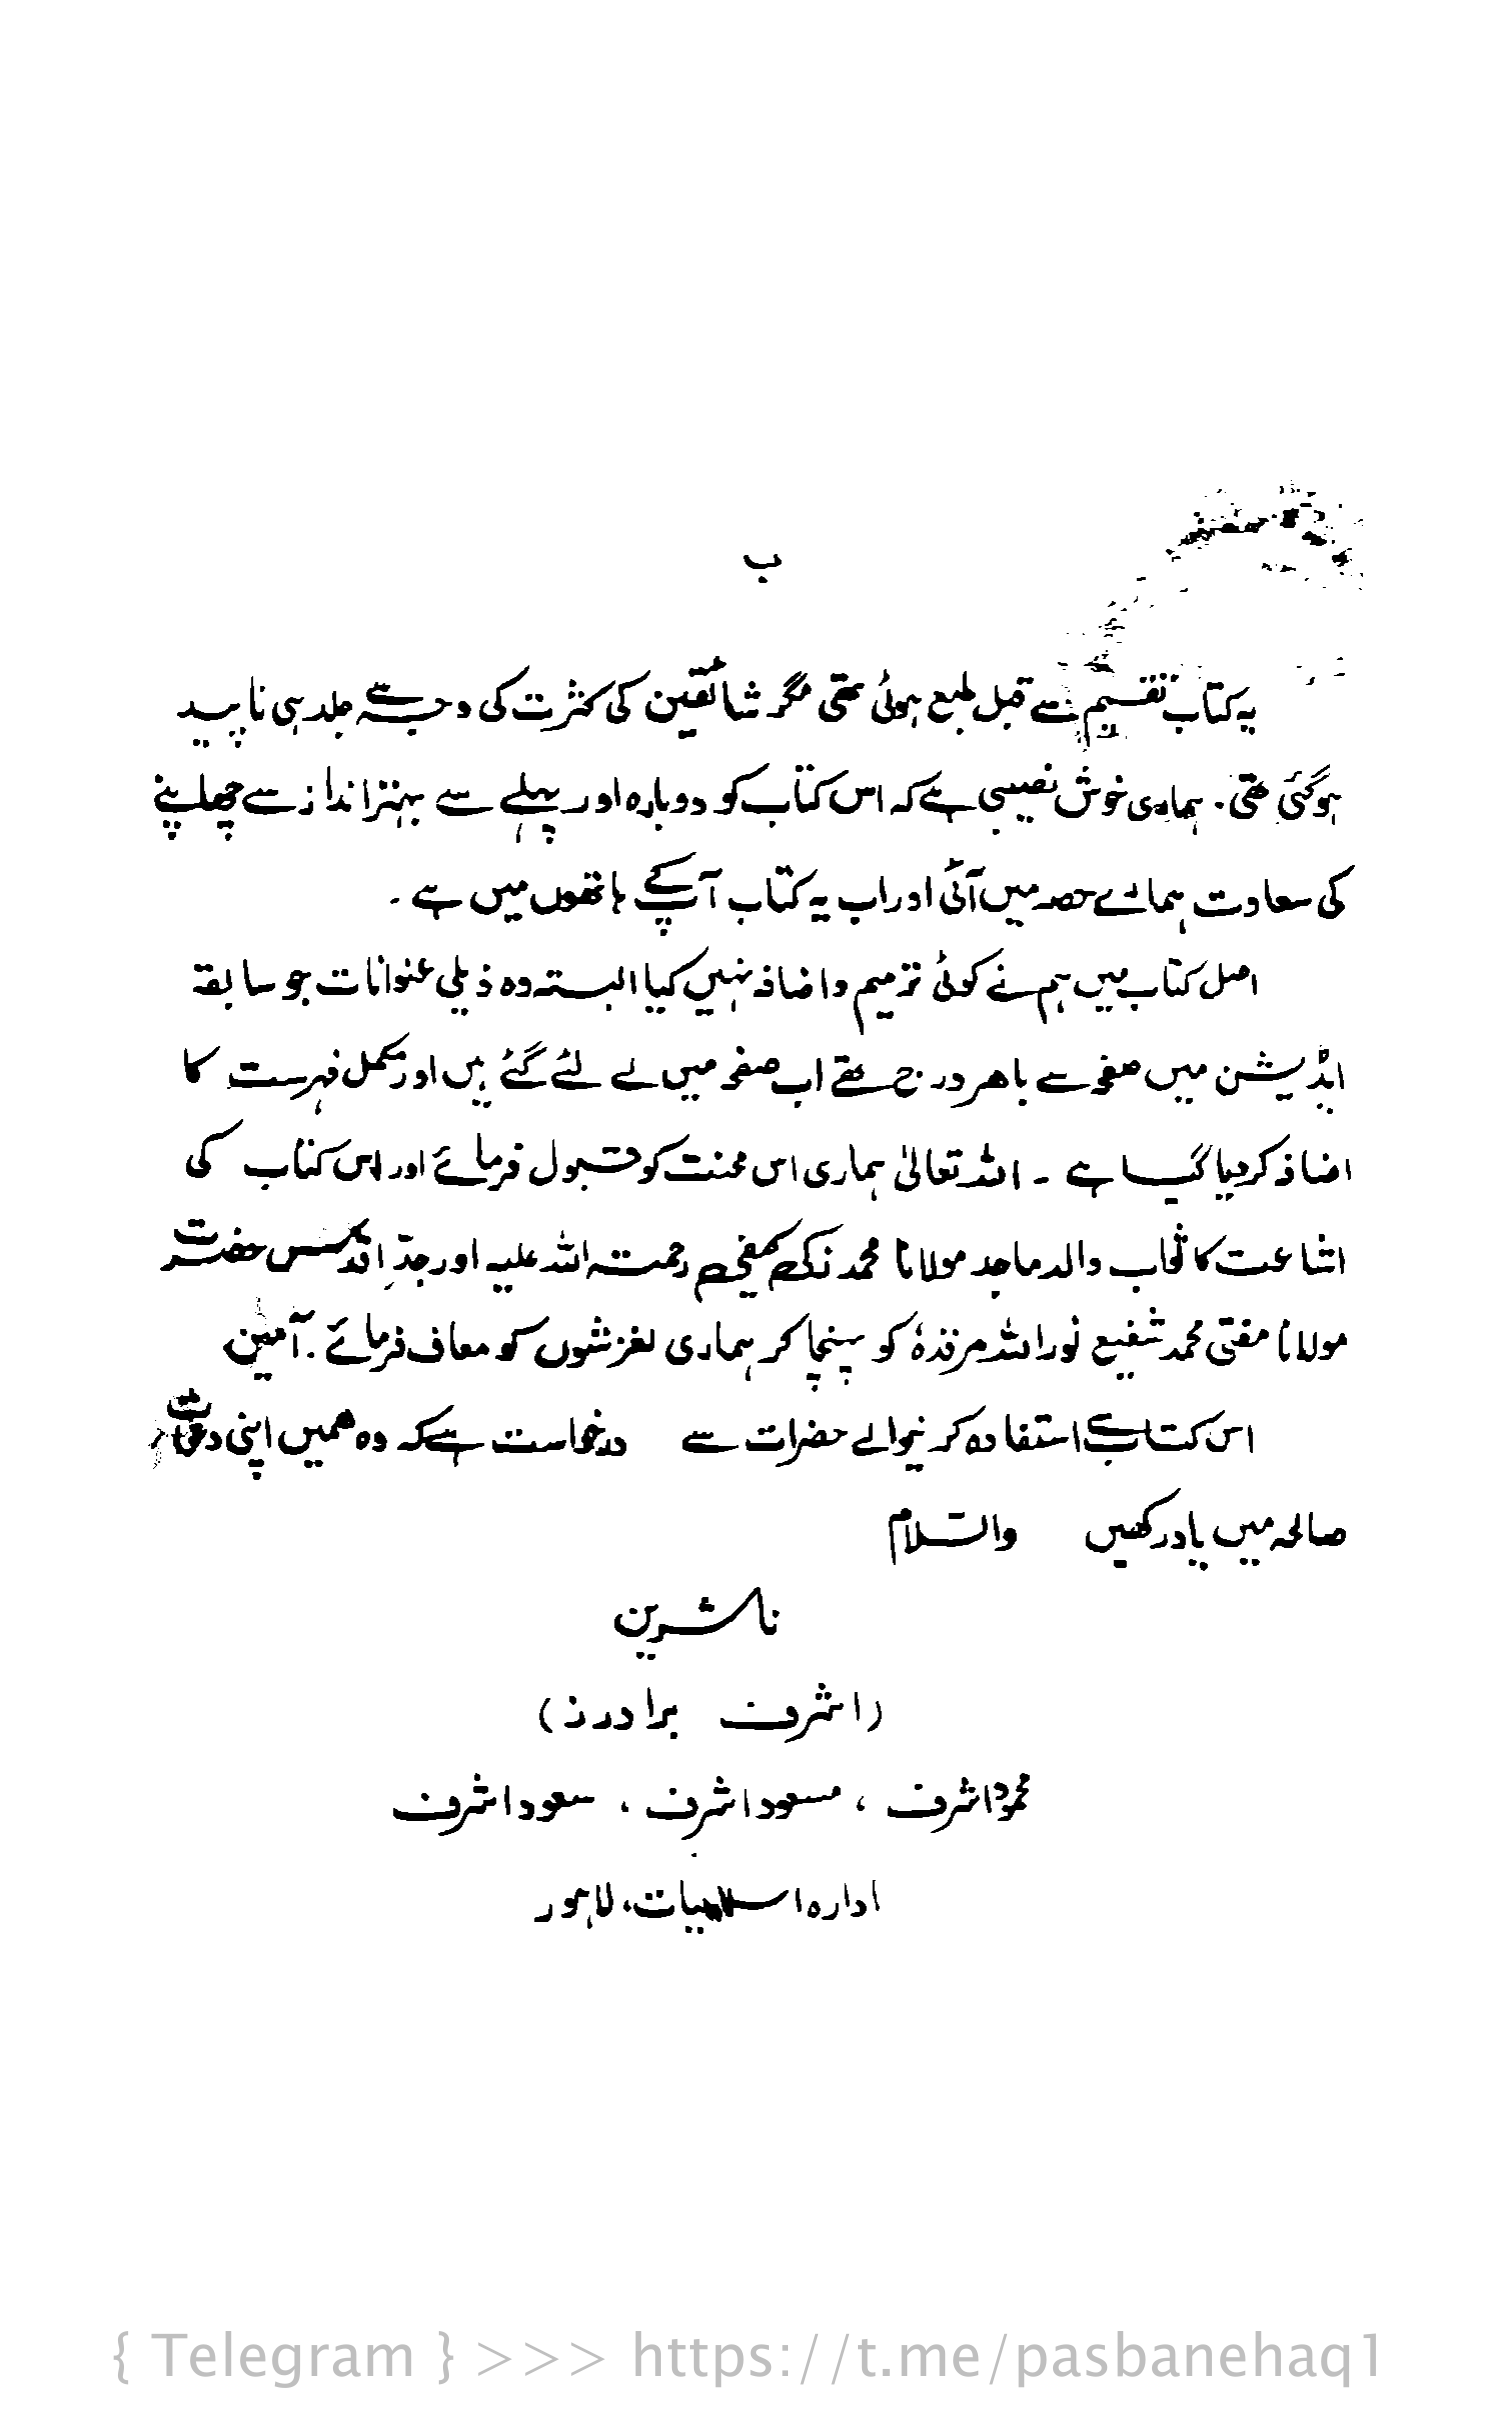 ب
یہ کتاب تقسیم سے قبل طبع ہوئی تھی مگر شائقین کی کثرت کی وجہ سے جلد ہی ناپید
ہوگئی تھی۔ ہماری خوش نصیبی ہے کہ اس کتاب کو دوبارہ اور پہلے سے بہتر انداز سے چھاپنے
کی سعادت ہمارے حصہ میں آئی اور اب یہ کتاب آپ کے ہاتھوں میں ہے۔
اصل کتاب میں ہم نے کوئی ترمیم و اضافہ نہیں کیا البتہ وہ ذیلی عنوانات جو سابقہ
ایڈیشن میں صفحہ سے باہر درج تھے اب صفحہ میں لے لئے گئے ہیں اور مکمل فہرست کا
اضافہ کر دیا گیا ہے ۔ اللہ تعالیٰ ہماری اس محنت کو قبول فرمائے اور اس کتاب کی
اشاعت کا ثواب والد ماجد مولانا محمد زکی کیفی رحمتہ اللہ علیہ اور جدّ اقدس حضرت
مولانا مفتی محمد شفیع نور اللہ مرقدہٗ کو پہنچا کر ہماری لغزشوں کو معاف فرمائے۔ آمین
اس کتاب سے استفادہ کرنیوالے حضرات سے درخواست ہے کہ وہ ہمیں اپنی
صالحہ میں یاد رکھیں والسّلام
ناشرین
(اشرف برادرز)
محمود اشرف ، مسعود اشرف ، سعود اشرف
ادارہ اسلامیات، لاہور
{ Telegram } >>> https://t.me/pasbanehaq1